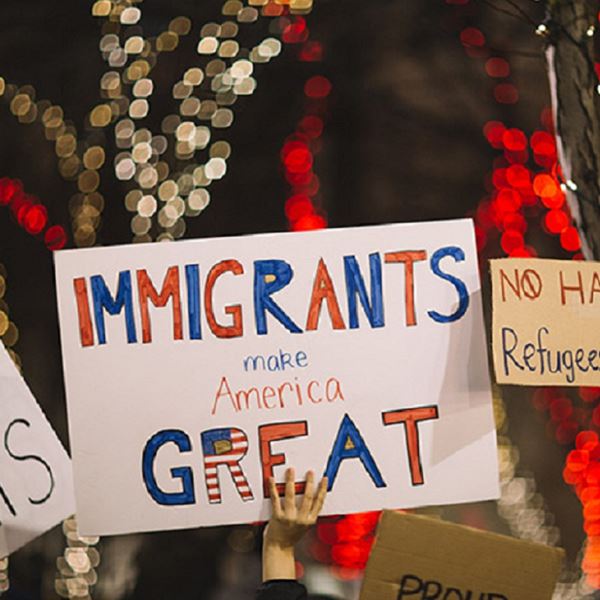 IMMIGRANTS
make
America
GREAT
NO HA
Refugees
PROUD